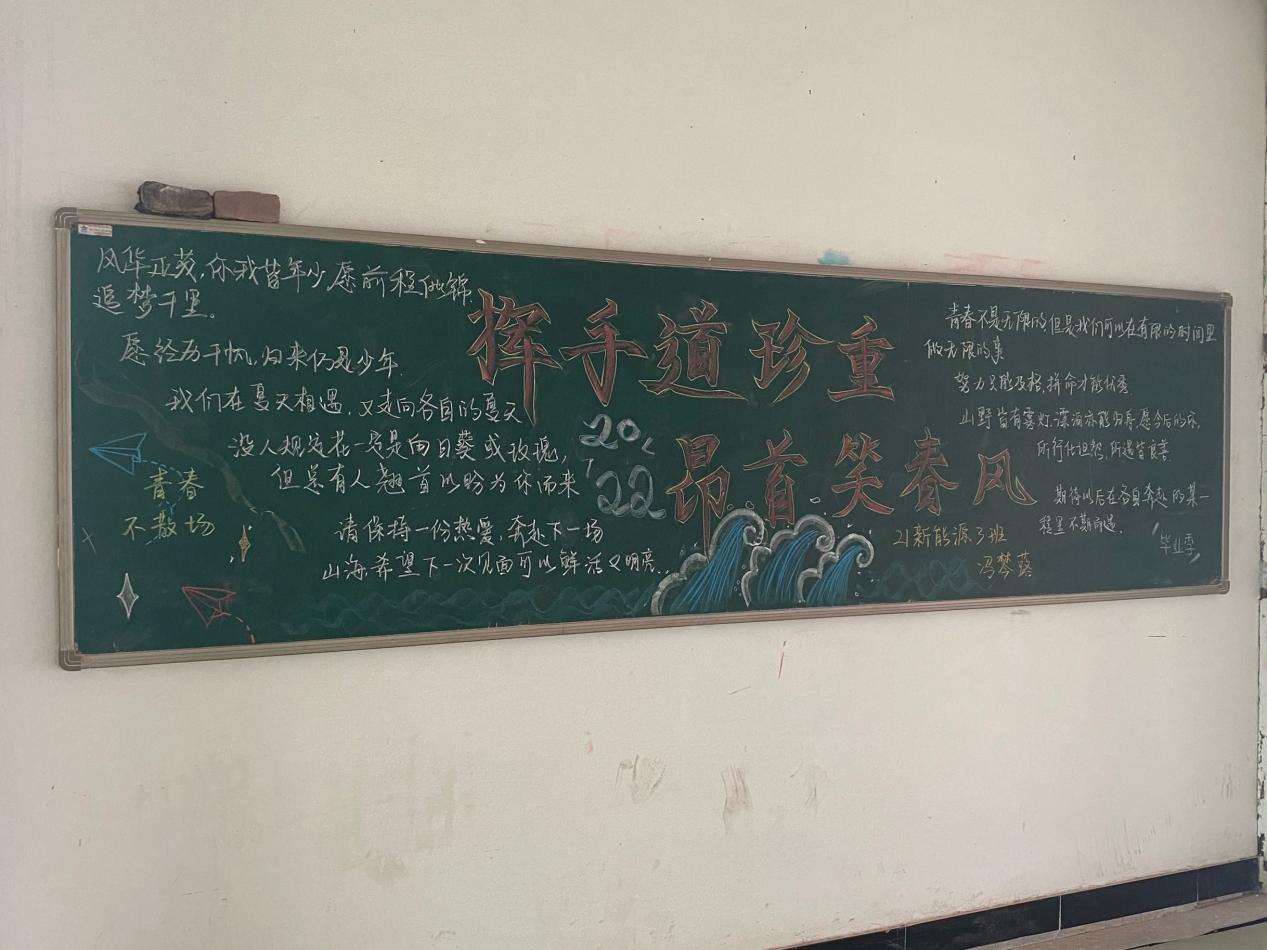 风华正茂,你我皆年少,愿前程似锦,
追梦千里。
愿经历千帆,归来仍是少年
我们在夏天相遇,又走向各自的夏天
没人规定花一定是向日葵或玫瑰,
但总有人翘首以盼为你而来
请保持一份热爱,奔赴下一场
山海,希望下一次见面可以鲜活又明亮.
青春
不散场
挥手道珍重
20
22
昂首笑春风
21新能源3班
冯梦蕊
青春不是无限的,但是我们可以在有限的时间里
做无限的事
努力只能及格,拼命才能优秀
山野皆有雾灯,漂泊亦能归舟,愿今后的你,
所行化坦途,所遇皆良善
期待以后在各自奔赴的某一
程里不期而遇.
毕业季